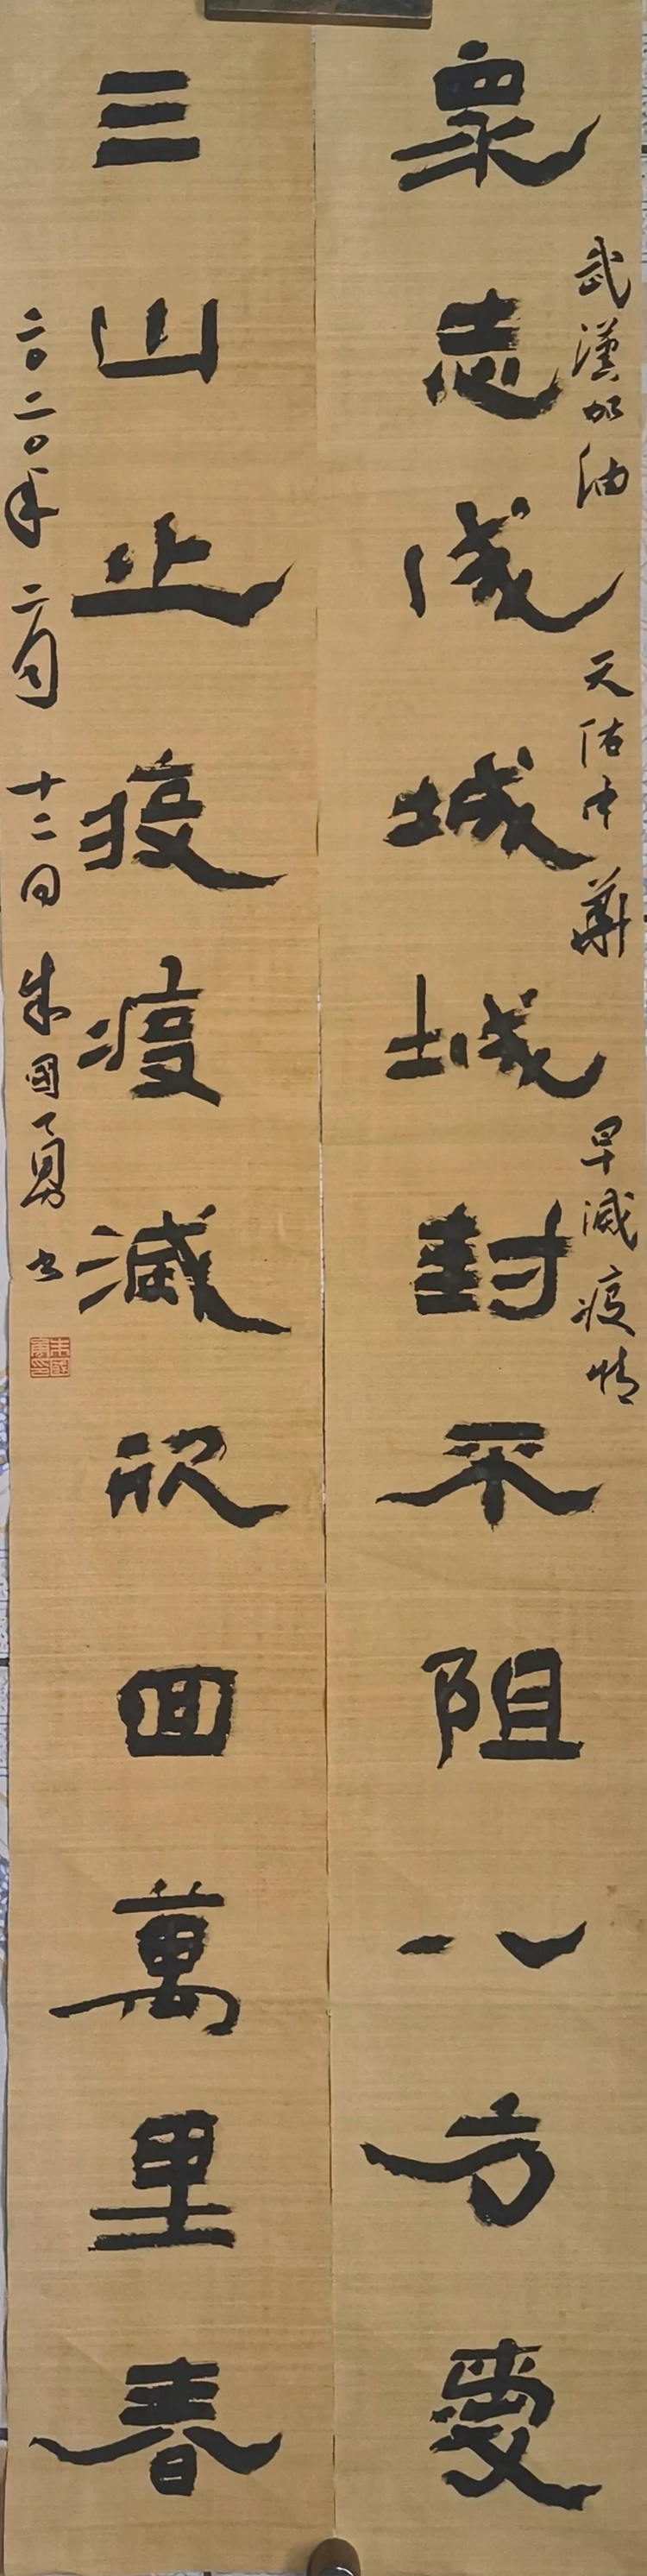 武漢加油 天佑中華 早滅疫情
衆志成城城封不阻八方愛
三山止疫疫滅欣回萬里春
二〇二〇年二月十二日 朱國勇書
朱國勇印